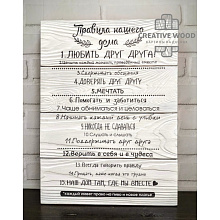 CREATIVE WOOD
Правила нашего
дома
1. ЛЮБИТЬ ДРУГ ДРУГА!
3. Сдерживать обещания
4. ДОВЕРЯТЬ ДРУГ ДРУГУ
5. МЕЧТАТЬ
6. Помогать и заботиться
7. Чаще обниматься и целоваться
8. Начинать каждый день с улыбки
9. НИКОГДА НЕ СДАВАТЬСЯ
10. Слушать и слышать
11. Поддерживать друг друга
12. Верить в себя и в чудеса
13. Всегда говорить правду
15. НАШ ДОМ ТАМ, ГДЕ МЫ ВМЕСТЕ
каждый имеет право на